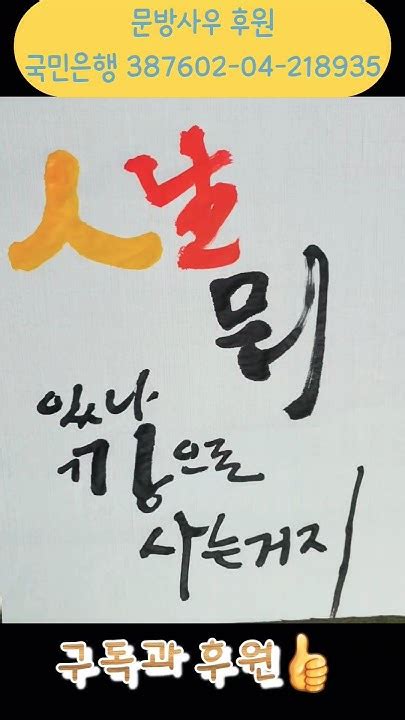 문방사우 후원
국민은행 387602-04-218935
人生
뭐
있나
깡으로
사는거지
구독과 후원👍